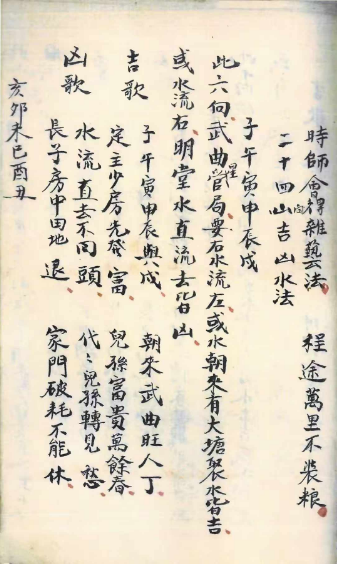 時師會得雜藝法 程途萬里不裝粮
二十四山向吉凶水法
子午寅申辰戌
此六向武曲星管局要右水流左或水朝來有大塘聚水皆吉
或水流右明堂水直流去皆凶
吉歌 子午寅甲辰與戌 朝來武曲旺人丁
定主少房先發富 兒孫富貴萬餘春
凶歌 水流直去不回頭 代〻兒孫轉見愁
長子房中田地退 家門破耗不能休
亥卯未巳酉丑